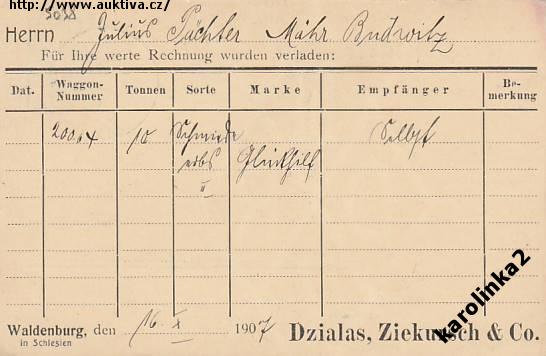 http://www.auktiva.cz/
Herrn Julius Pächter Mähr. Budwitz
Für Ihre werte Rechnung wurden verladen:
Dat. Waggon-Nummer Tonnen Sorte Marke Empfänger Bemerkung
10 Schmiede Selbst
erbs Glückhilf
II
Waldenburg, den 16. X 1907 Dzialas, Ziekursch & Co.
in Schlesien
karolinka2